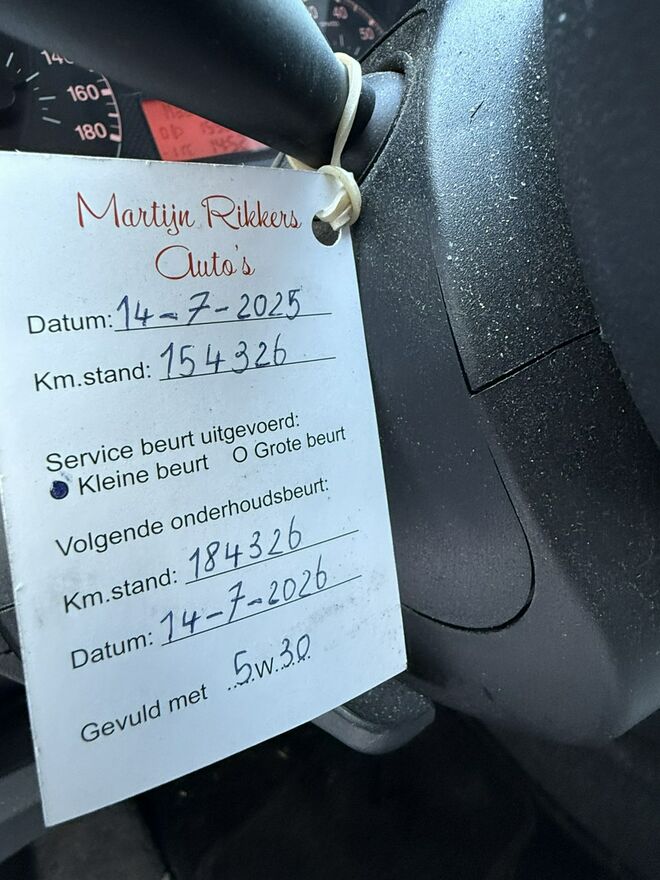 140
160
180
40
50
Martijn Rikkers
Auto's
Datum: 14-7-2025
Km.stand: 154326
Service beurt uitgevoerd:
Kleine beurt O Grote beurt
Volgende onderhoudsbeurt:
Km.stand: 184326
Datum: 14-7-2026
Gevuld met 5.W.30